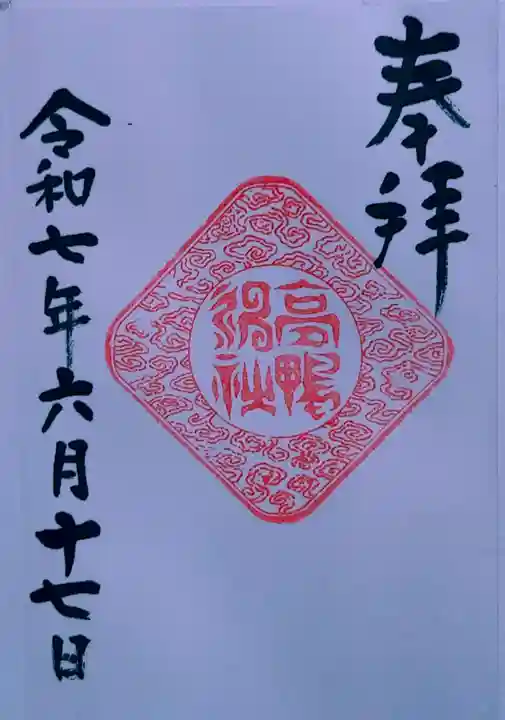 奉拝
高鴨
神社
令和七年六月十七日